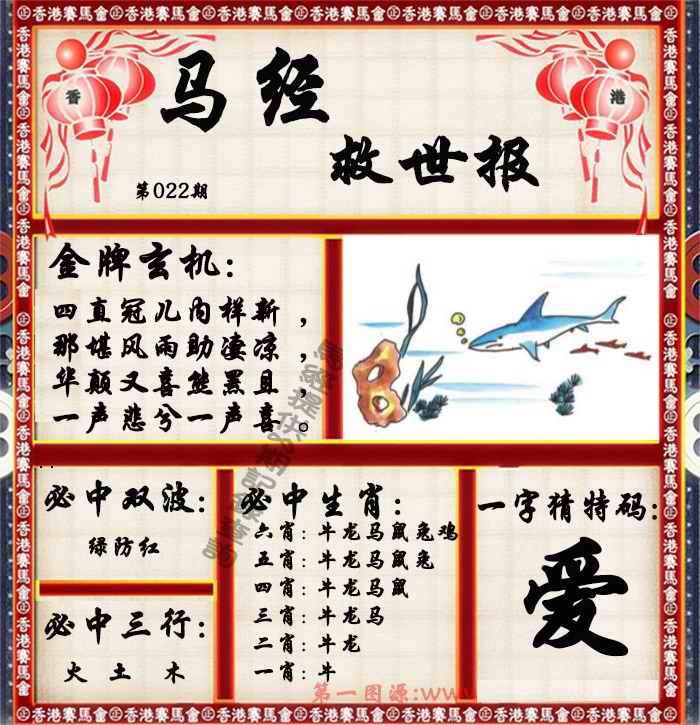 香港賽馬會
香
港
马经
救世报
第022期
金牌玄机:
四直冠儿内样新，
那堪风雨助凄凉，
华颠又喜熊黑且，
一声悲兮一声喜。
必中双波:
绿防红
必中三行:
火 土 木
必中生肖:
六肖: 牛龙马鼠兔鸡
五肖: 牛龙马鼠兔
四肖: 牛龙马鼠
三肖: 牛龙马
二肖: 牛龙
一肖: 牛
一字猜特码:
爱
第一图源:www